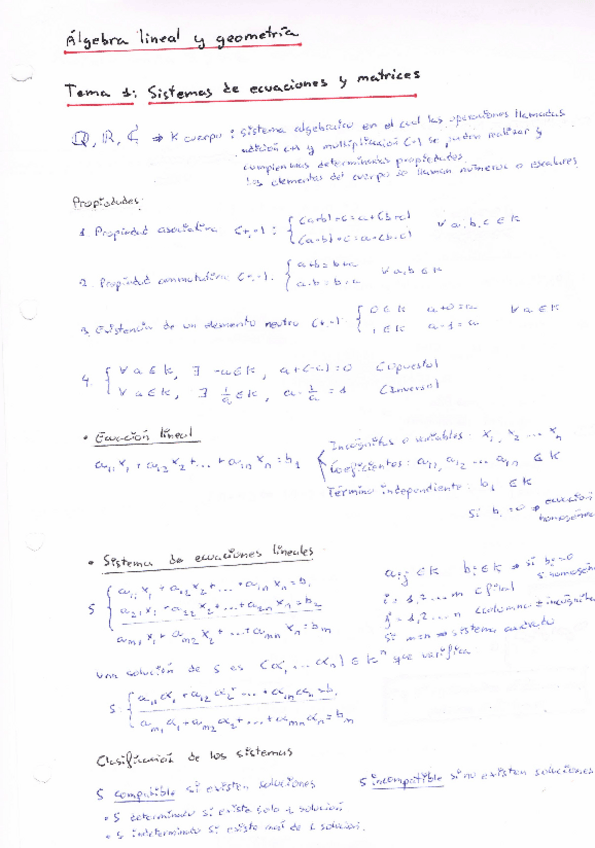 Álgebra lineal y geometría
Tema 1: Sistemas de ecuaciones y matrices
Q, R, C ⇒ K cuerpo: sistema algebraico en el cual las operaciones llamadas
adición (+) y multiplicación (·) se pueden realizar y
cumpliendo determinadas propiedades.
Los elementos del cuerpo se llaman números o escalares
Propiedades:
1. Propiedad asociativa (+,·): { (a+b)+c = a+(b+c)
(a·b)·c = a·(b·c) ∀ a,b,c ∈ K
2. Propiedad conmutativa (+,·). { a+b = b+a
a·b = b·a ∀ a,b ∈ K
3. Existencia de un elemento neutro (+,·) { 0 ∈ K a+0=a
1 ∈ K a·1=a ∀ a ∈ K
4. { ∀ a ∈ K, ∃ -a ∈ K, a+(-a)=0 (Opuesto)
∀ a ∈ K, ∃ 1/a ∈ K, a·1/a = 1 (Inverso)
• Ecuación lineal
a₁₁x₁ + a₁₂x₂ + ... + a₁ₙxₙ = b₁
Incógnitas o variables: x₁, x₂ ... xₙ
Coeficientes: a₁₁, a₁₂ ... a₁ₙ ∈ K
Término independiente: b₁ ∈ K
Si b₁=0 ⇒ ecuación
homogénea
• Sistema de ecuaciones lineales
S { a₁₁x₁ + a₁₂x₂ + ... + a₁ₙxₙ = b₁
a₂₁x₁ + a₂₂x₂ + ... + a₂ₙxₙ = b₂
aₘ₁x₁ + aₘ₂x₂ + ... + aₘₙxₙ = bₘ
aᵢⱼ ∈ K bᵢ ∈ K ⇒ si bᵢ=0
S homogén
i = 1,2 ... m (fila)
j = 1,2 ... n (columna = incógnita
Si m=n ⇒ sistema cuadrado
una solución de S es (α₁, ... αₙ) ∈ Kⁿ que verifica
S { a₁₁α₁ + a₁₂α₂ + ... + a₁ₙαₙ = b₁
aₘ₁α₁ + aₘ₂α₂ + ... + aₘₙαₙ = bₘ
Clasificación de los sistemas
S compatible si existen soluciones
S incompatible si no existen soluciones
• S determinado si existe solo 1 solución
• S indeterminado si existe más de 1 solución.